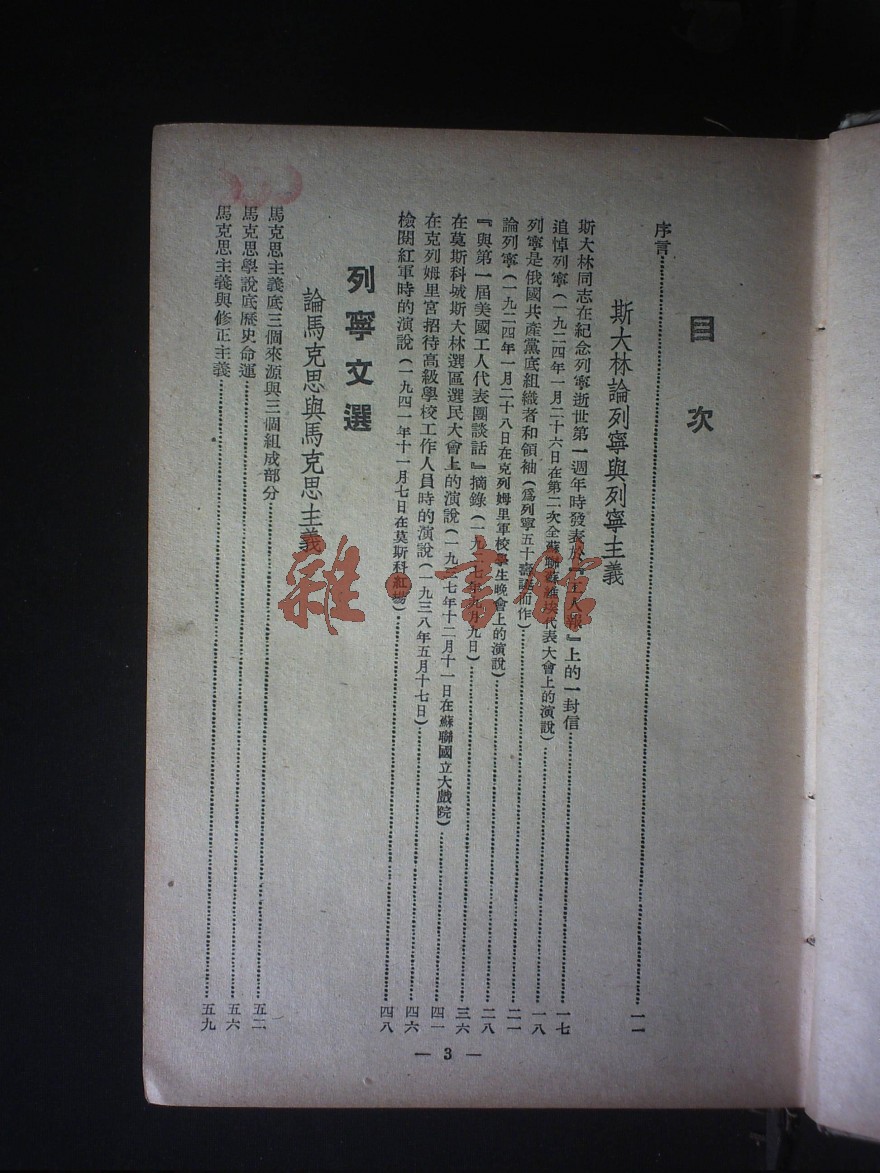 目次
序言 一一
斯大林論列寧與列寧主義
斯大林同志在紀念列寧逝世第一週年時發表於『工人報』上的一封信 一七
追悼列寧(一九二四年一月二十六日在第二次全蘇聯蘇維埃代表大會上的演說) 一八
列寧是俄國共產黨底組織者和領袖(爲列寧五十壽誕而作) 二一
論列寧(一九二四年一月二十八日在克列姆里軍校學生晚會上的演說) 二八
『與第一屆美國工人代表團談話』摘錄(一九二七年九月九日) 三六
在莫斯科城斯大林選區選民大會上的演說(一九三七年十二月十一日在蘇聯國立大戲院) 四一
在克列姆里宮招待高級學校工作人員時的演說(一九三八年五月十七日) 四六
檢閱紅軍時的演說(一九四一年十一月七日在莫斯科紅場) 四八
列寧文選
論馬克思與馬克思主義
馬克思主義底三個來源與三個組成部分 五二
馬克思學說底歷史命運 五六
馬克思主義與修正主義 五九
— 3 —
雜·書館